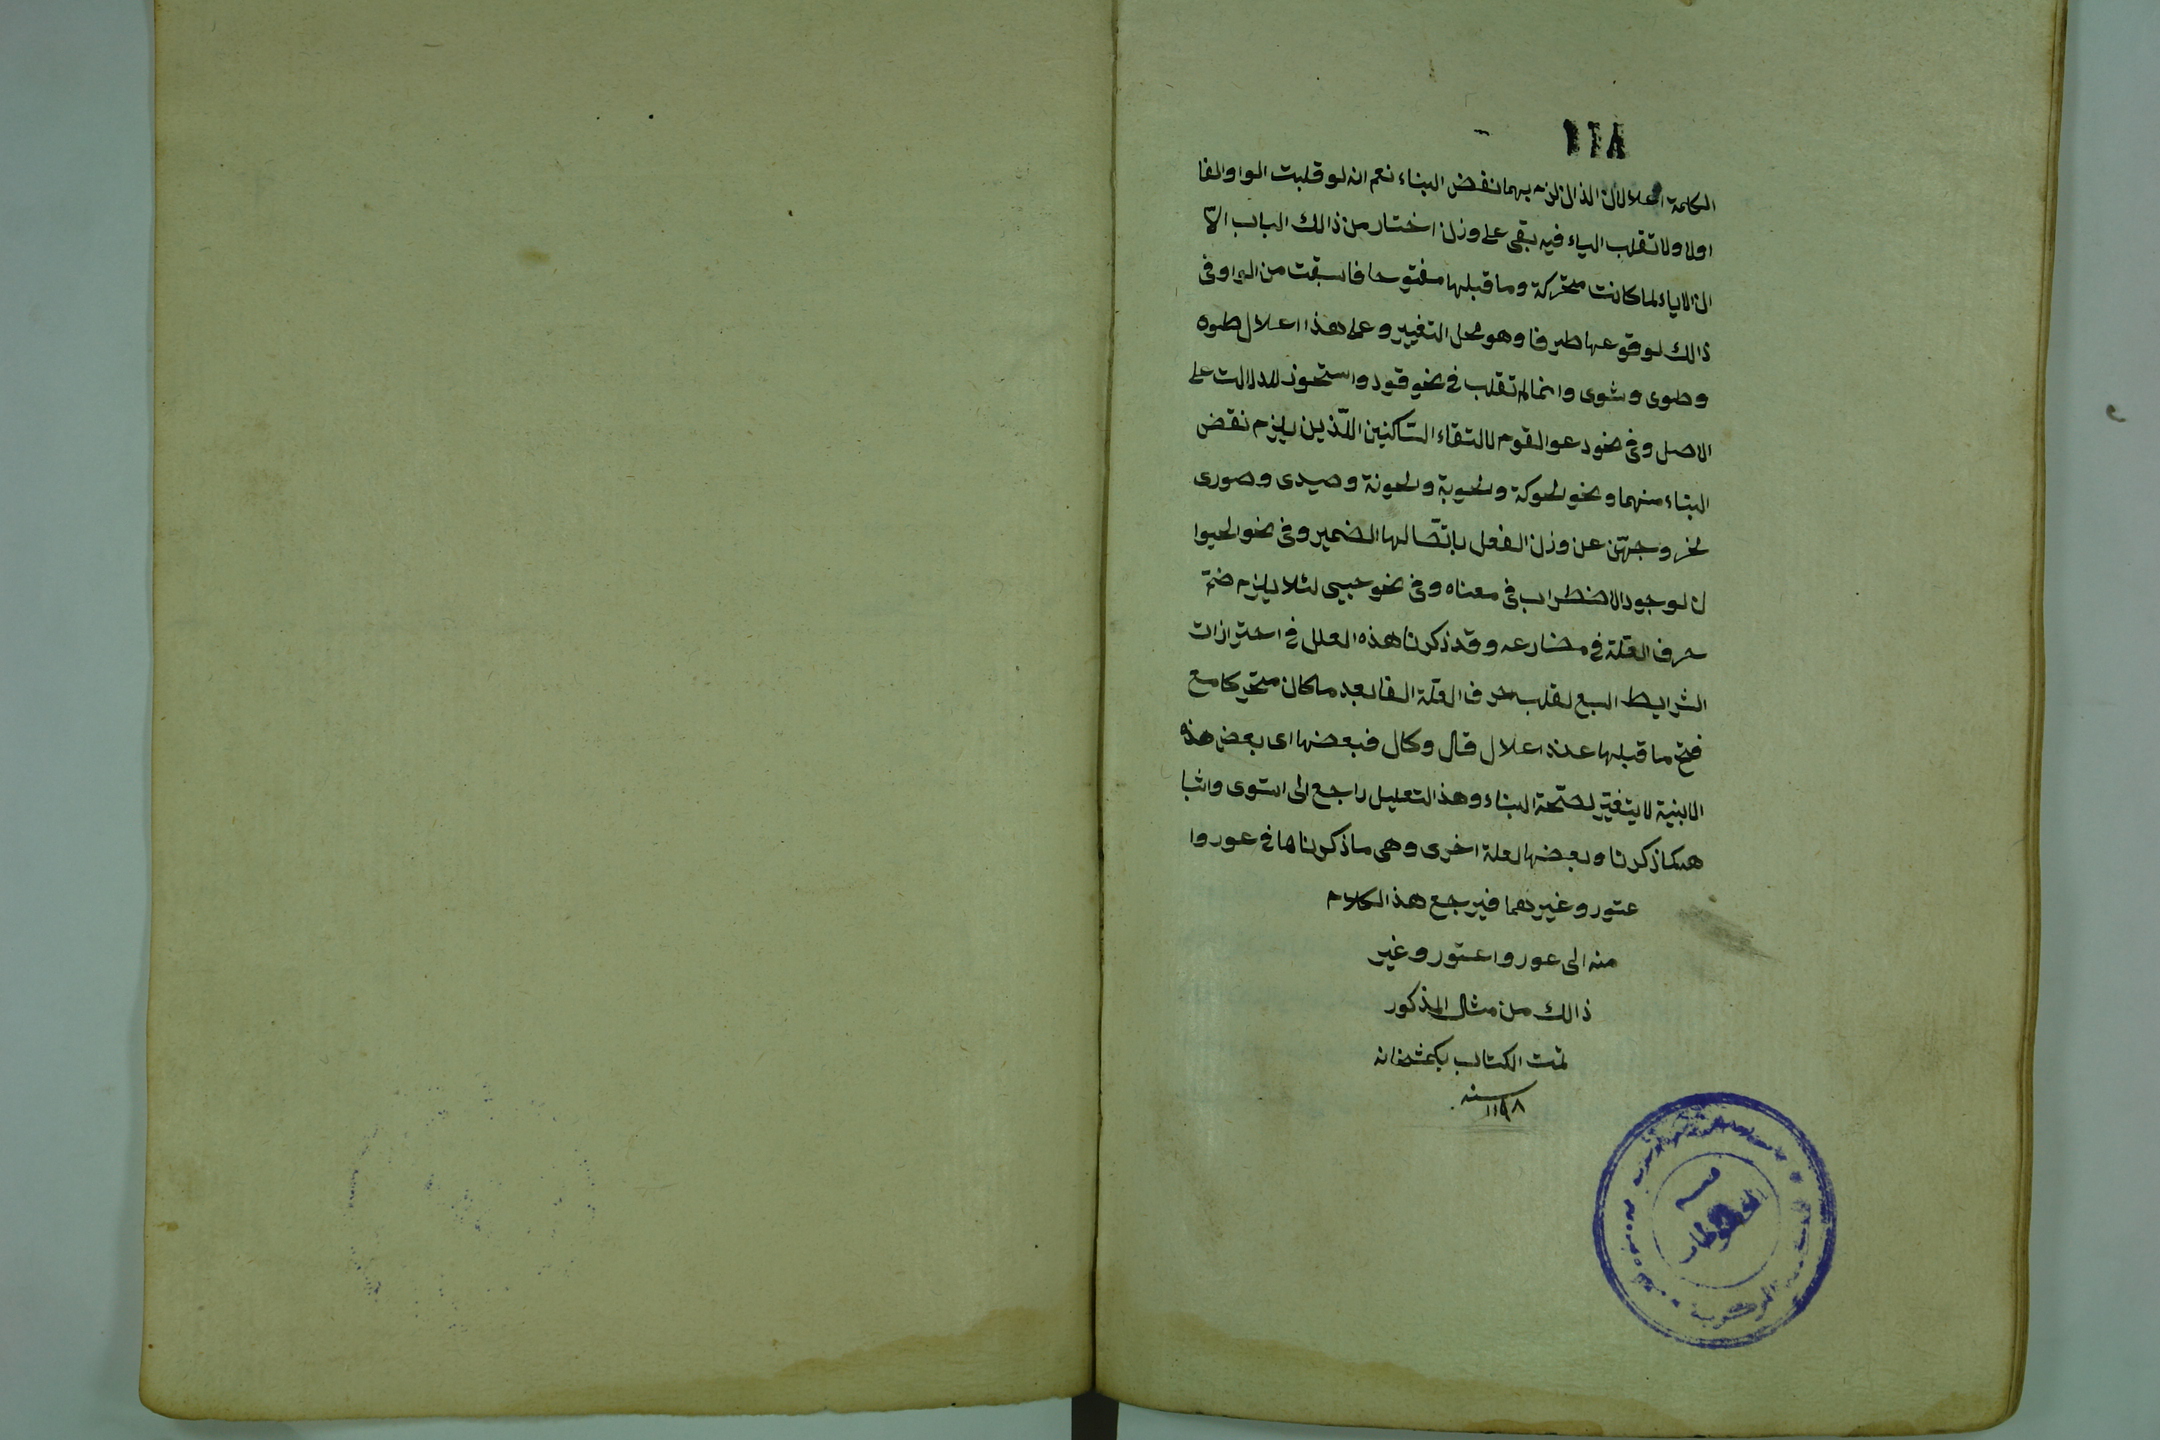 ١٦٨
الكلمة اعلالان الذان لزم بهما نفض البناء نعم انه لو قلبت الواو الفا
اولا ولا تقلب الياء فيه بقى على وزن اختار من ذالك الباب الّا
ان الاياء لما كانت متحركة وما قبلها مفتوحا فاسبقت من الواو فى
ذالك لوقوعها طرفا وهو محل التغيير وعلى هذا اعلال طوه
وطوى وشوى وانما لم تقلب فى نحو قود واستحوذ للدلالت على
الاصل وفى نحو دعوا القوم لالتقاء السّاكنين اللّذين يلزم نقض
البناء منهما ونحو الحوكة والحوبة والحونة وصيدى وصورى
لخروجهّن عن وزن الفعل باتّصالها الضمير وفى نحو الحيوا
ن لوجود الاضطراب فى معناه وفى نحو حيى لئلا يلزم ضمّ
حرف العلة فى مضارعه وقد ذكرنا هذه العلل فى احترازات
الشرايط السبع لقلب حرف العلة الفا بعد ما كان متحركا مع
فتح ما قبلها عند اعلال قال وكال فبعضها اى بعض هذه
الابنية لا يتغيّر لصّحة البناء وهذا التعليل راجع الى استوى واشبا
هه كما ذكرنا وبعضها لعلة اخرى وهى ما ذكرناها فى عور وا
عتور وغيرهما فيرجع هذ الكلام
منه الى عور واعتور وغير
ذالك من مثال المذكور
تمت الكتاب
سنه
١١٩٨